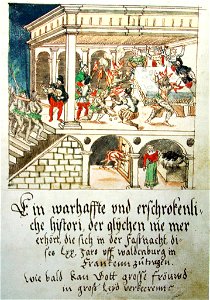 Ein warhaffte vnd erschrokenli-
che histori, der glychen nie mer
erhört, die sich in der faßnacht di-
ses lxx. Jars vff waldenburg in
Francken zůtragen.
Wie bald kan Gott grosse fröuwd
in groß leyd verkeeren: